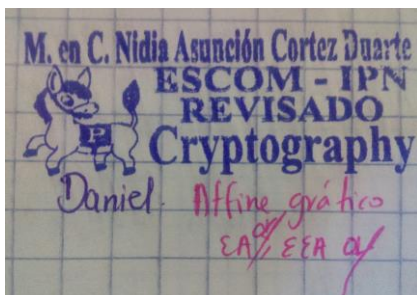 M. en C. Nidia Asunción Cortez Duarte
ESCOM - IPN
REVISADO
P
Cryptography
Daniel. Affine gráfico
EA, EEA